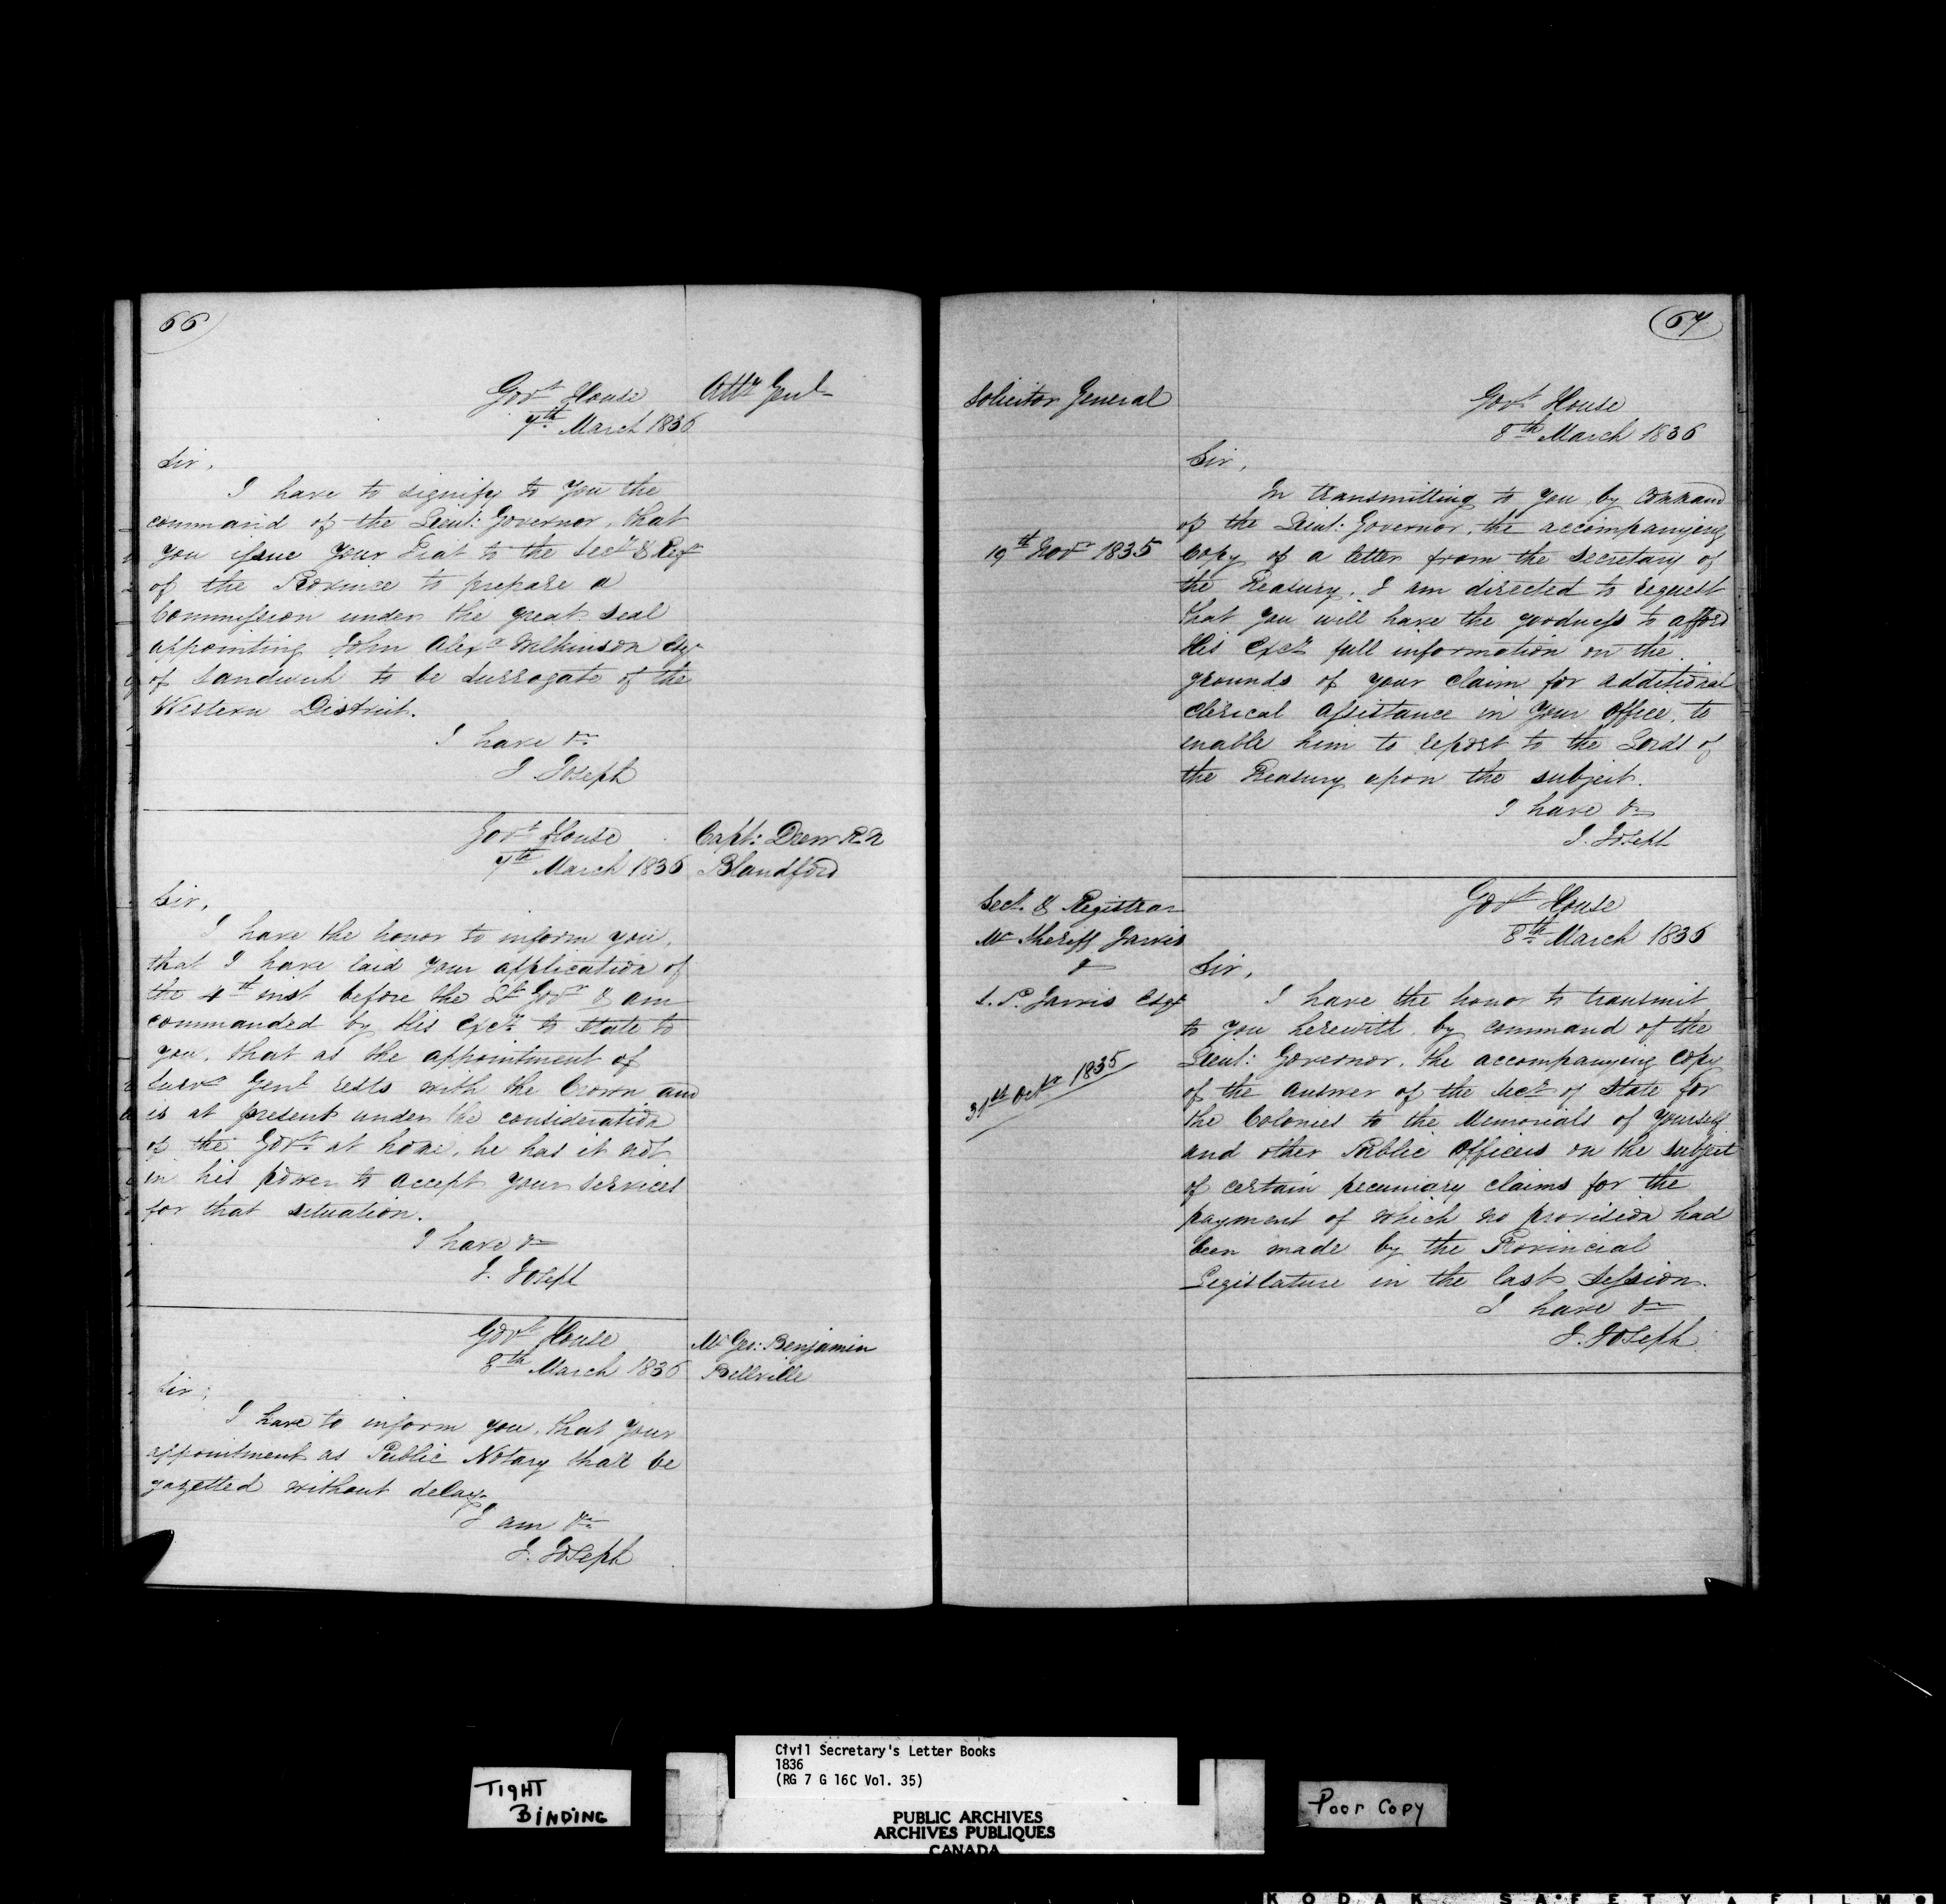 66
Govt House
7th March 1836
Atty Genl
Sir,
I have to signify to you the
command of the Lieut: Governor, that
you issue your Fiat to the Secy & Regr
of the Province to prepare a
Commission under the great seal
appointing John Alexr Wilkinson Esqr
of Sandwich to be Surrogate of the
Western District.
I have &c
J. Joseph
Govt House
7th March 1836
Capt: Drew R.N
Blandford
Sir,
I have the honor to inform you,
that I have laid your application of
the 4th inst before the Lt Govr & am
commanded by His Excy to state to
you, that as the appointment of
Survr Genl rests with the Crown and
is at present under the consideration
of the Govt at home, he has it not
in his power to accept your services
for that situation.
I have &c
J. Joseph
Govt House
8th March 1836
Mr Geo: Benjamin
Belleville
Sir,
I have to inform you, that your
appointment as Public Notary shall be
gazetted without delay.
I am &c
J. Joseph
67
Solicitor General
Govt House
8th March 1836
Sir,
19th Novr 1835
In transmitting to you by command
of the Lieut: Governor, the accompanying
Copy of a letter from the Secretary of
the Treasury, I am directed to request
that you will have the goodness to afford
His Excy full information on the
grounds of your claim for additional
clerical assistance in your office, to
enable him to report to the Lords of
the Treasury upon the subject.
I have &c
J. Joseph
Secy & Registrar
Mr Sheriff Jarvis
&
S. P. Jarvis Esqr
Govt House
8th March 1836
Sir,
31st Octr 1835
I have the honor to transmit
to you herewith by command of the
Lieut: Governor, the accompanying copy
of the answer of the Secy of State for
the Colonies to the Memorials of yourself
and other Public Officers on the subject
of certain pecuniary claims for the
payment of which no provision had
been made by the Provincial
Legislature in the last Session.
I have &c
J. Joseph
TIGHT
BINDING
Civil Secretary's Letter Books
1836
(RG 7 G 16C Vol. 35)
PUBLIC ARCHIVES
ARCHIVES PUBLIQUES
CANADA
Poor Copy
KODAK SAFETY FILM